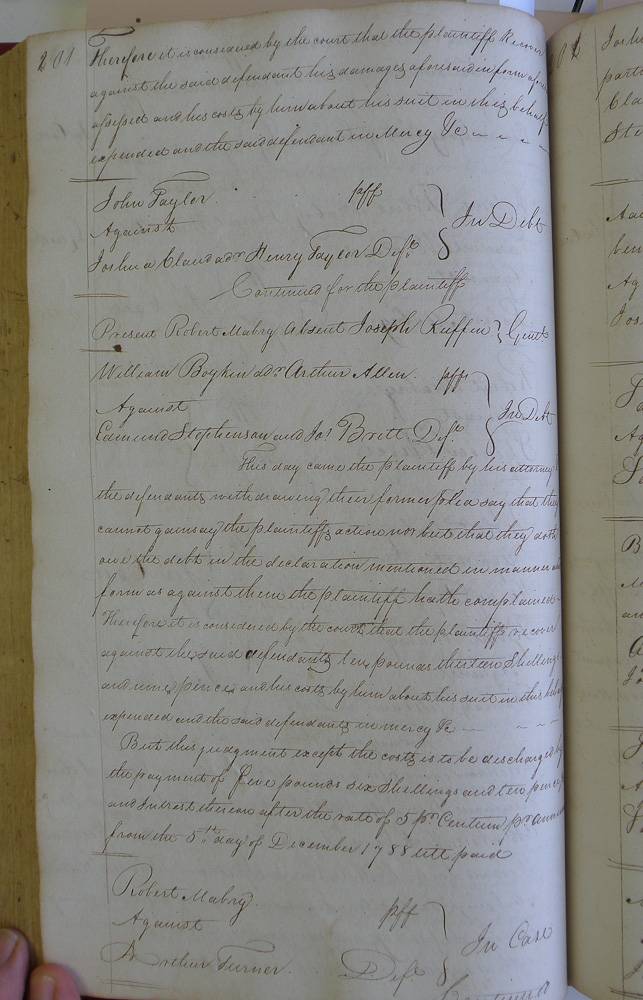 201
Therefore it is considered by the court that the plaintiff Recover
against the said defendant his damages aforesaid in form afore
assessed and his costs by him about his suit in this behalf
expended and the said defendant in Mercy &c
John Taylor pff
Against } In Debt
Joshua Claud adr Henry Taylor Deft
Continued for the plaintiff
Present Robert Mabry Absent Joseph Ruffin } Gentn
William Boykin adr Arthur Allen pff
Against } In Debt
Edmund Stephenson and Jas Brett Deft
This day came the plaintiff by his attorney
the defendants withdrawing their former plea say that they
cannot gainsay the plaintiffs action nor but that they doth
owe the debt in the declaration mentioned in manner and
form as against them the plaintiff hath complained
Therefore it is considered by the court that the plaintiffs recover
against the said defendants ten pounds thirteen Shillings
and nine pence and his costs by him about his suit in this behalf
expended and the said defendants in mercy &c
But this judgment except the costs is to be discharged by
the payment of five pounds six Shillings and ten pence
and Interest thereon after the rate of 5 pr Centum pr annum
from the 5th day of December 1788 till paid
Robert Mabry pff
Against } In Case
Arthur Turner Deft